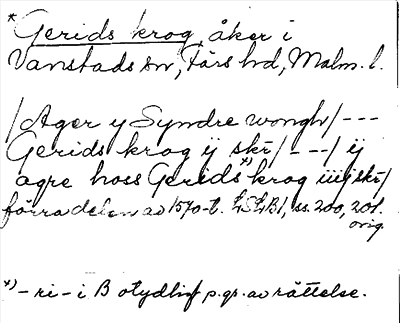 * Gerids krog, åker i
Vanstads sn, Färs hd, Malm. l.
/Ager y Syndre wongh/ ---
Gerids krog ÿ skr/ ---/ ÿ
agre hoss Gerids *) krog iiij skr/
förra delen av 1570-t. LSLB1, ss. 200, 201.
orig.
*) - ri - i B otydligt p.gr. av rättelse.